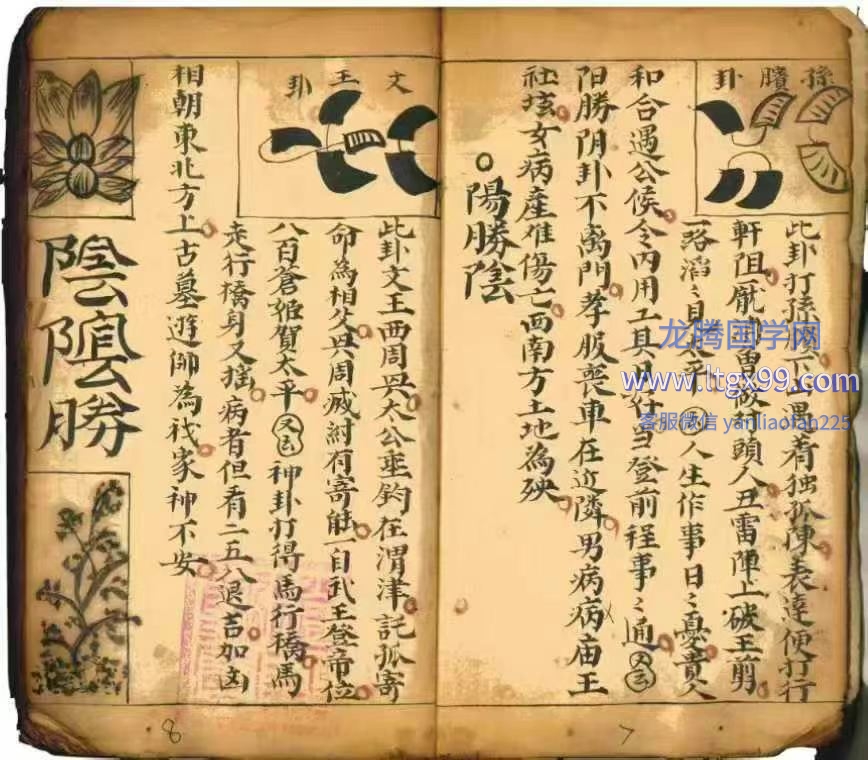 孫臏卦
此卦打孫下山遇着独孤陳表達便打行
軒阻曾頭人丑雷陣上破王剪
一路滔〻見太平人生作事日〻憂貴人
和合遇公候令内用工真好当登前程事〻通又云
阳勝阴卦不离門孝服喪車在近隣男病病庙王
社垓女病産难傷亡西南方土地為殃
陽勝陰
文王卦
此卦文王西周共太公垂钓在渭津託孤寄
命為相父共周滅紂有寄能一自武王登帝位
八百蒼姬賀太平又云神卦打得馬行橋馬
走行橋身又摇病者但看二五八退吉加凶
相朝東北方上古墓遊師為伐家神不安
陰陰勝
7
8
龙腾国学网
www.ltgx99.com
客服微信 yanliaofan225